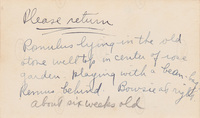 Please return
Romulus lying in the old
stone well top in center of rose
garden, playing with a bean-bag
Remus behind. Bowsie at right
about six weeks old